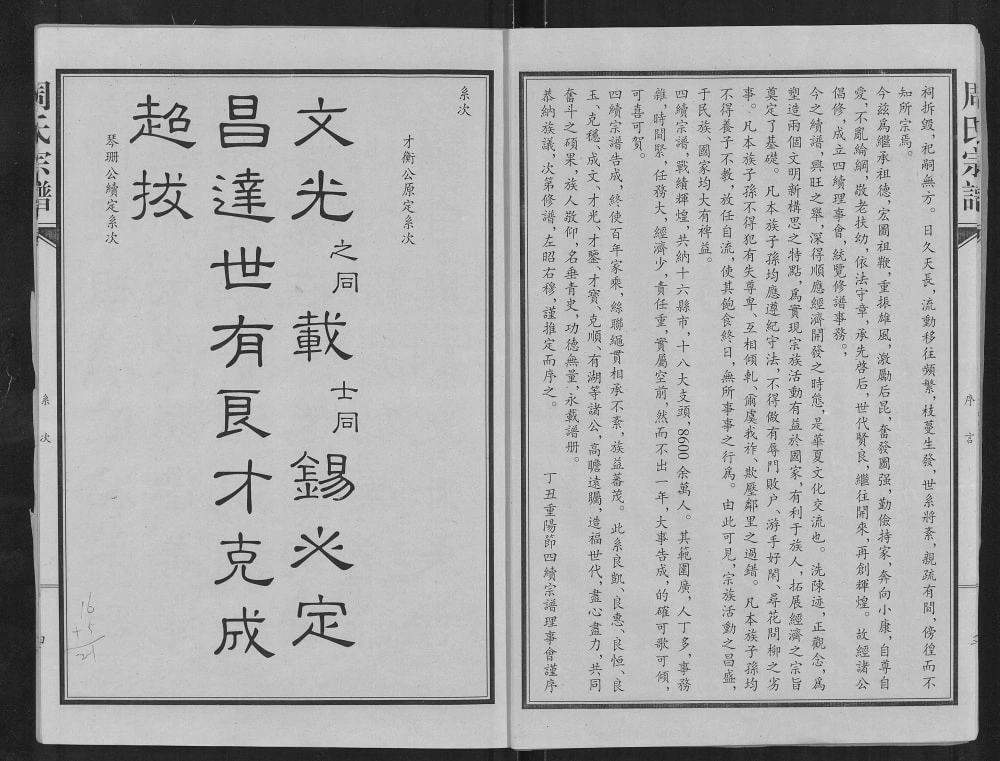 周氏宗譜
序言
祠拆毁，祀嗣無方。日久天長，流動移往頻繁，枝蔓生發，世系將紊，親疏有間，傍徨而不
知所宗焉。
今兹爲繼承祖德，宏圖祖鞭，重振雄風，激勵后昆，奮發圖强，勤儉持家，奔向小康，自尊自
愛，不亂綸綱，敬老扶幼，依法守章，承先啓后，世代賢良，繼往開來，再創輝煌。故經諸公
倡修，成立四續理事會，統覽修譜事務。，
今之續譜，興旺之舉，深得順應經濟開發之時態，是華夏文化交流也。洗陳迹，正觀念，爲
塑造兩個文明新構思之特點，爲實現宗族活動有益於國家，有利于族人，拓展經濟之宗旨
奠定了基礎。凡本族子孫均應遵紀守法，不得做有辱門敗户、游手好閑、尋花問柳之劣
事。凡本族子孫不得犯有失尊卑、互相傾軋、爾虞我詐、欺壓鄰里之過錯。凡本族子孫均
不得養子不教，放任自流，使其飽食終日，無所事事之行爲。由此可見，宗族活動之昌盛，
于民族、國家均大有裨益。
四續宗譜，戰績輝煌，共納十六縣市，十八大支頭，8600余萬人。其範圍廣，人丁多，事務
雜，時間緊，任務大，經濟少，責任重，實屬空前，然而不出一年，大事告成，的確可歌可傾，
可喜可賀。
四續宗譜告成，終使百年家乘，絲聯繩貫相承不紊，族益蕃茂。此系良凱、良惠、良恒、良
玉、克穩、成文、才光、才鑒、才寶、克順、有湖等諸公，高瞻遠矚，造福世代，盡心盡力，共同
奮斗之碩果，族人敬仰，名垂青史，功德無量，永載譜册。
恭納族議，次第修譜，左昭右穆，謹推定而序之。
丁丑重陽節四續宗譜理事會謹序
系次
才衡公原定系次
文光之同載士同錫必定
昌達世有良才克成
超拔
琴珊公續定系次
周氏宗譜
系次
四
16
+5
21